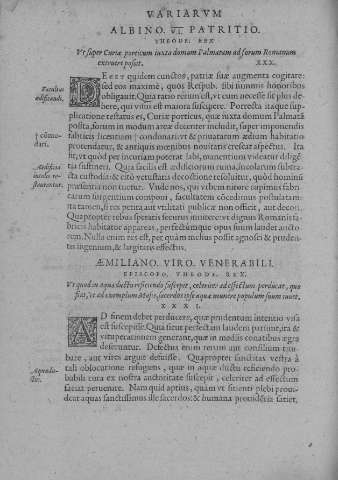 VARIARVM
ALBINO. VI. PATRITIO.
THEODE. REX
Vt super Curiæ porticum iuxta domum Palmatam ad forum Romanum
extruere possit. XXX.
Facultas
ædificandi.
DECET quidem cunctos, patriæ suæ augmenta cogitare:
sed eos maximè, quos Respub. sibi summis honoribus
obligauit. Quia ratio rerum est, vt eum necesse sit plus de-
bere, qui visus est maiora suscipere. Porrecta itaque sup-
plicatione testatus es, Curiæ porticus, quæ iuxta domum Palmatã
posita, forum in modum areæ decenter includit, superimponendis
fabricis licentiam condonari: vt & priuatarum ædium habitatio
protendatur, & antiquis mœnibus nouitatis crescat aspectus. Ita
fit, vt quod per incuriam poterat labi, manentium videatur diligẽ-
tia sustineri. Quia facilis est ædificiorum ruina, incolarum subtra-
cta custodia: & citò vetustatis decoctione resoluitur, quod hominũ
præsentia non tuetur. Vnde nos, qui vrbem nitore cupimus fabri-
carum surgentium componi, facultatem cõcedimus postulatam:
ita tamen, si res petita aut vtilitati publicæ non officit, aut decori.
Quapropter rebus speratis securus innitere: vt dignus Romanis fa-
bricis habitator appareas, perfectumque opus suum laudet aucto-
rem. Nulla enim res est, per quàm melius possit agnosci & pruden-
tis ingenium, & largitatis effectus.
† cõmo-
dari.
Aedificia
incolis re-
staurantur.
ÆMILIANO. VIRO VENERABILI.
EPISCOPO, THEODE. REX.
Vt quod in aquæ ductu reficiendo suscepit, celeriter ad effectum perducat, quo
XXXI.
AD finem debet perducere, quæ prudentum intentio visa
est suscepisse. Quia sicut perfectam laudem pariunt, ita &
vituperationem generant, quæ in mediis conatibus ægra
deseruntur. Defectus enim rerum aut consilium titu-
bare, aut vires arguit defuisse. Quapropter sanctitas vestra à
tali oblocutione refugiens, quæ in aquæ ductu reficiendo pro-
babili cura ex nostra auctoritate suscepit, celeriter ad effectum
faciat peruenire. Nam quid aptius, quàm vt sitienti plebi proui-
deat aquas sanctissimus ille sacerdos: & humana prouidẽtia satiet,
Aquædu-
ctus.